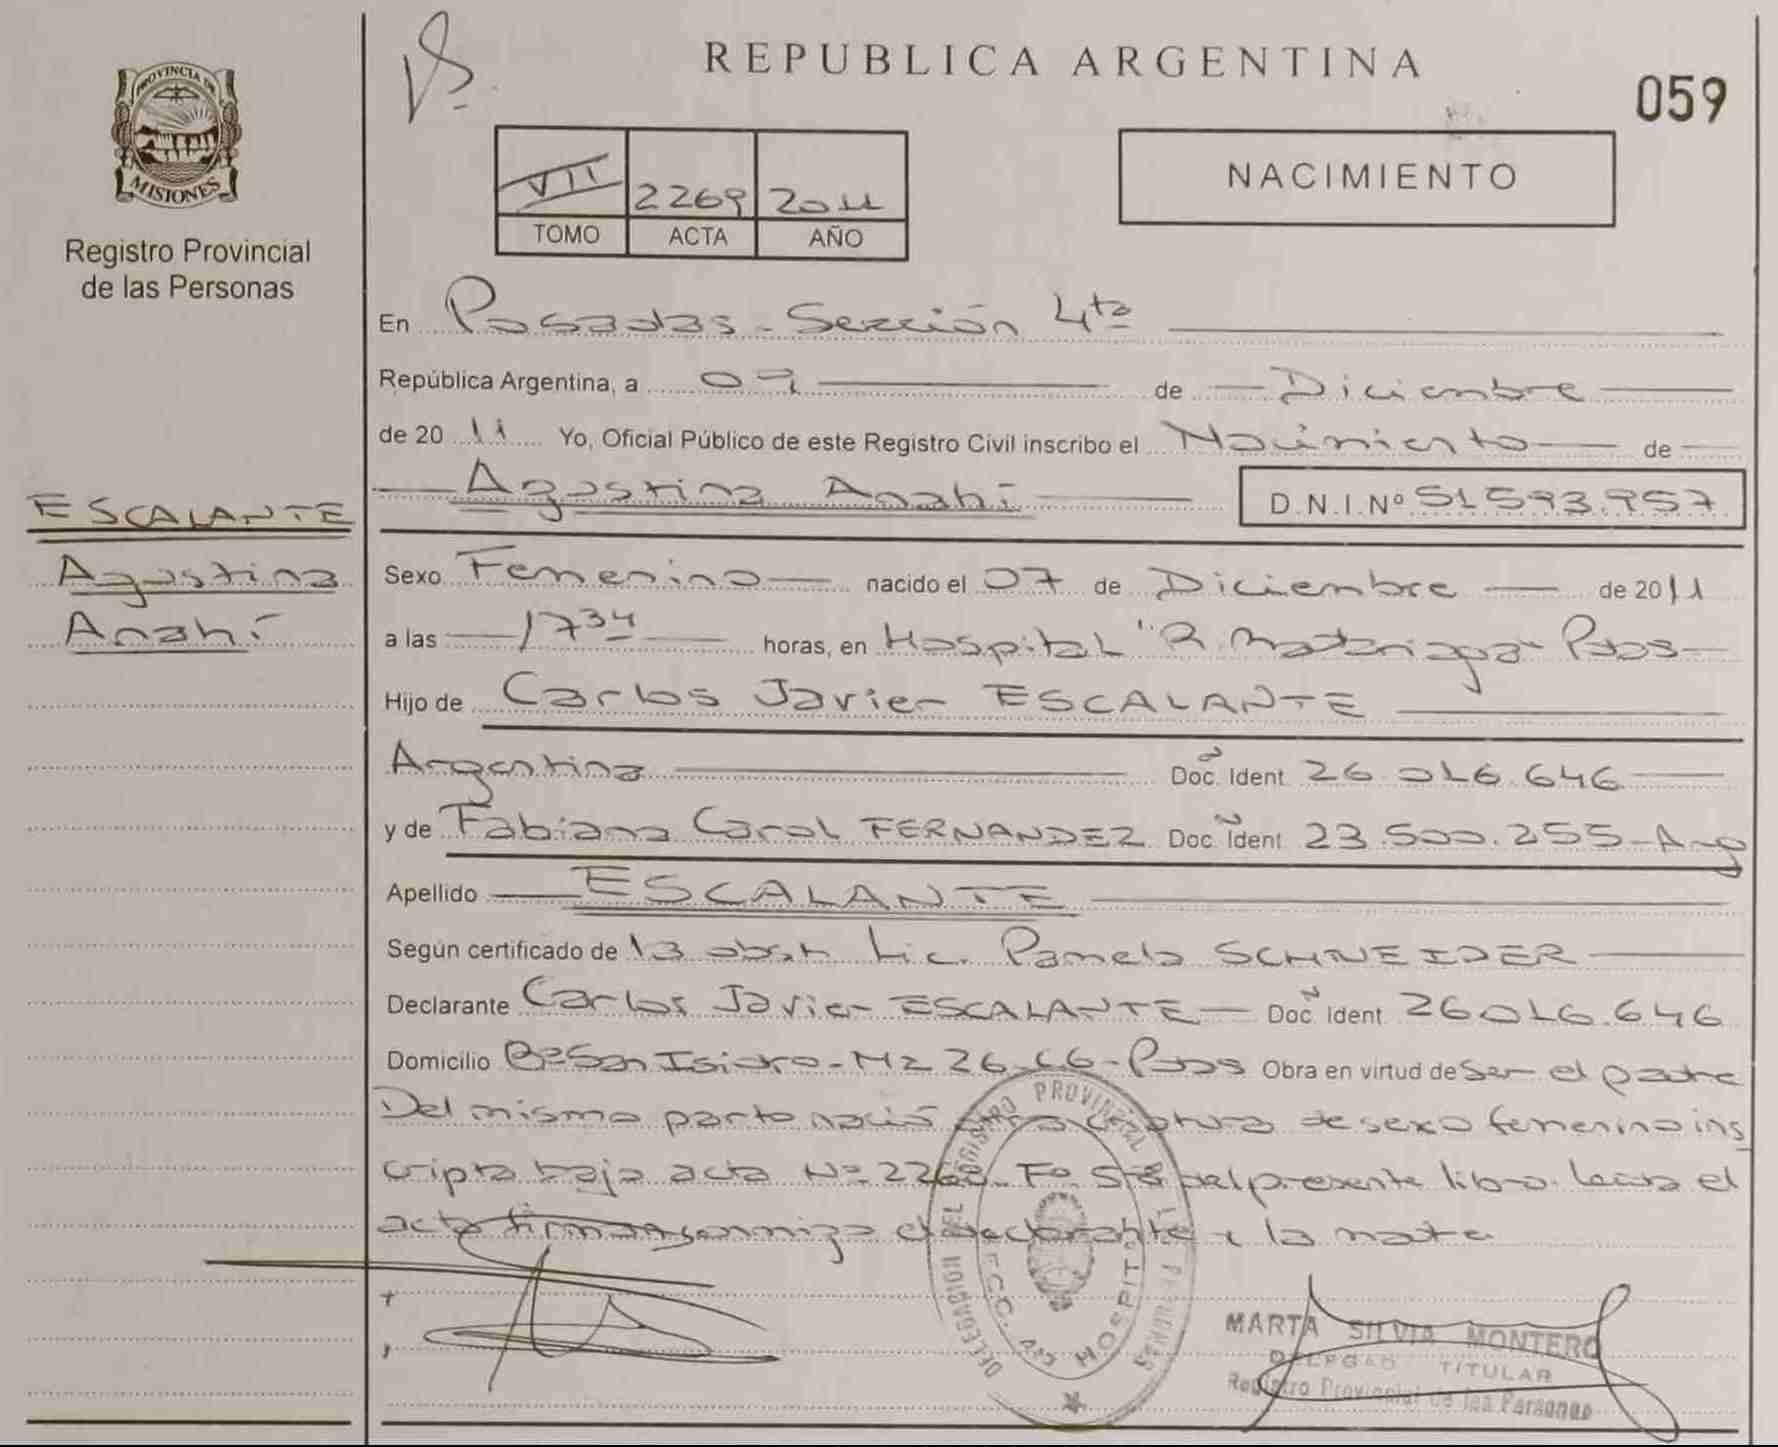 REPUBLICA ARGENTINA
059
PROVINCIA DE
MISIONES
Registro Provincial
de las Personas
VII 2269 2011
TOMO ACTA AÑO
NACIMIENTO
En Posadas - Sección 4ta
República Argentina, a 09 de Diciembre
de 2011 Yo, Oficial Público de este Registro Civil inscribo el Nacimiento de
Agustina Anahí D.N.I.Nº 51.593.957
ESCALANTE
Agustina
Anahí
Sexo Femenino nacido el 07 de Diciembre de 2011
a las 17 34 horas, en Hospital "R. Madariaga" Pdas
Hijo de Carlos Javier ESCALANTE
Argentina Doc. Ident. 26.016.646
y de Fabiana Carol FERNANDEZ Doc. Ident. 23.500.255 - Arg
Apellido ESCALANTE
Según certificado de la obst. Lic. Pamela SCHNEIDER
Declarante Carlos Javier ESCALANTE Doc. Ident. 26016.646
Domicilio Bº San Isidro - Mz 26 - C6 - Pdas Obra en virtud de ser el padre
Del mismo parto nació otra criatura de sexo femenino ins
cripta bajo acta Nº 2268 Fº 58 del presente libro. Leída el
acta firman conmigo el declarante y la
DELEGACION DEL REGISTRO PROVINCIAL DE LAS PERSONAS
HOSPIT
MARTA SILVIA MONTERO
DELEGAD TITULAR
Registro Provincial de las Personas